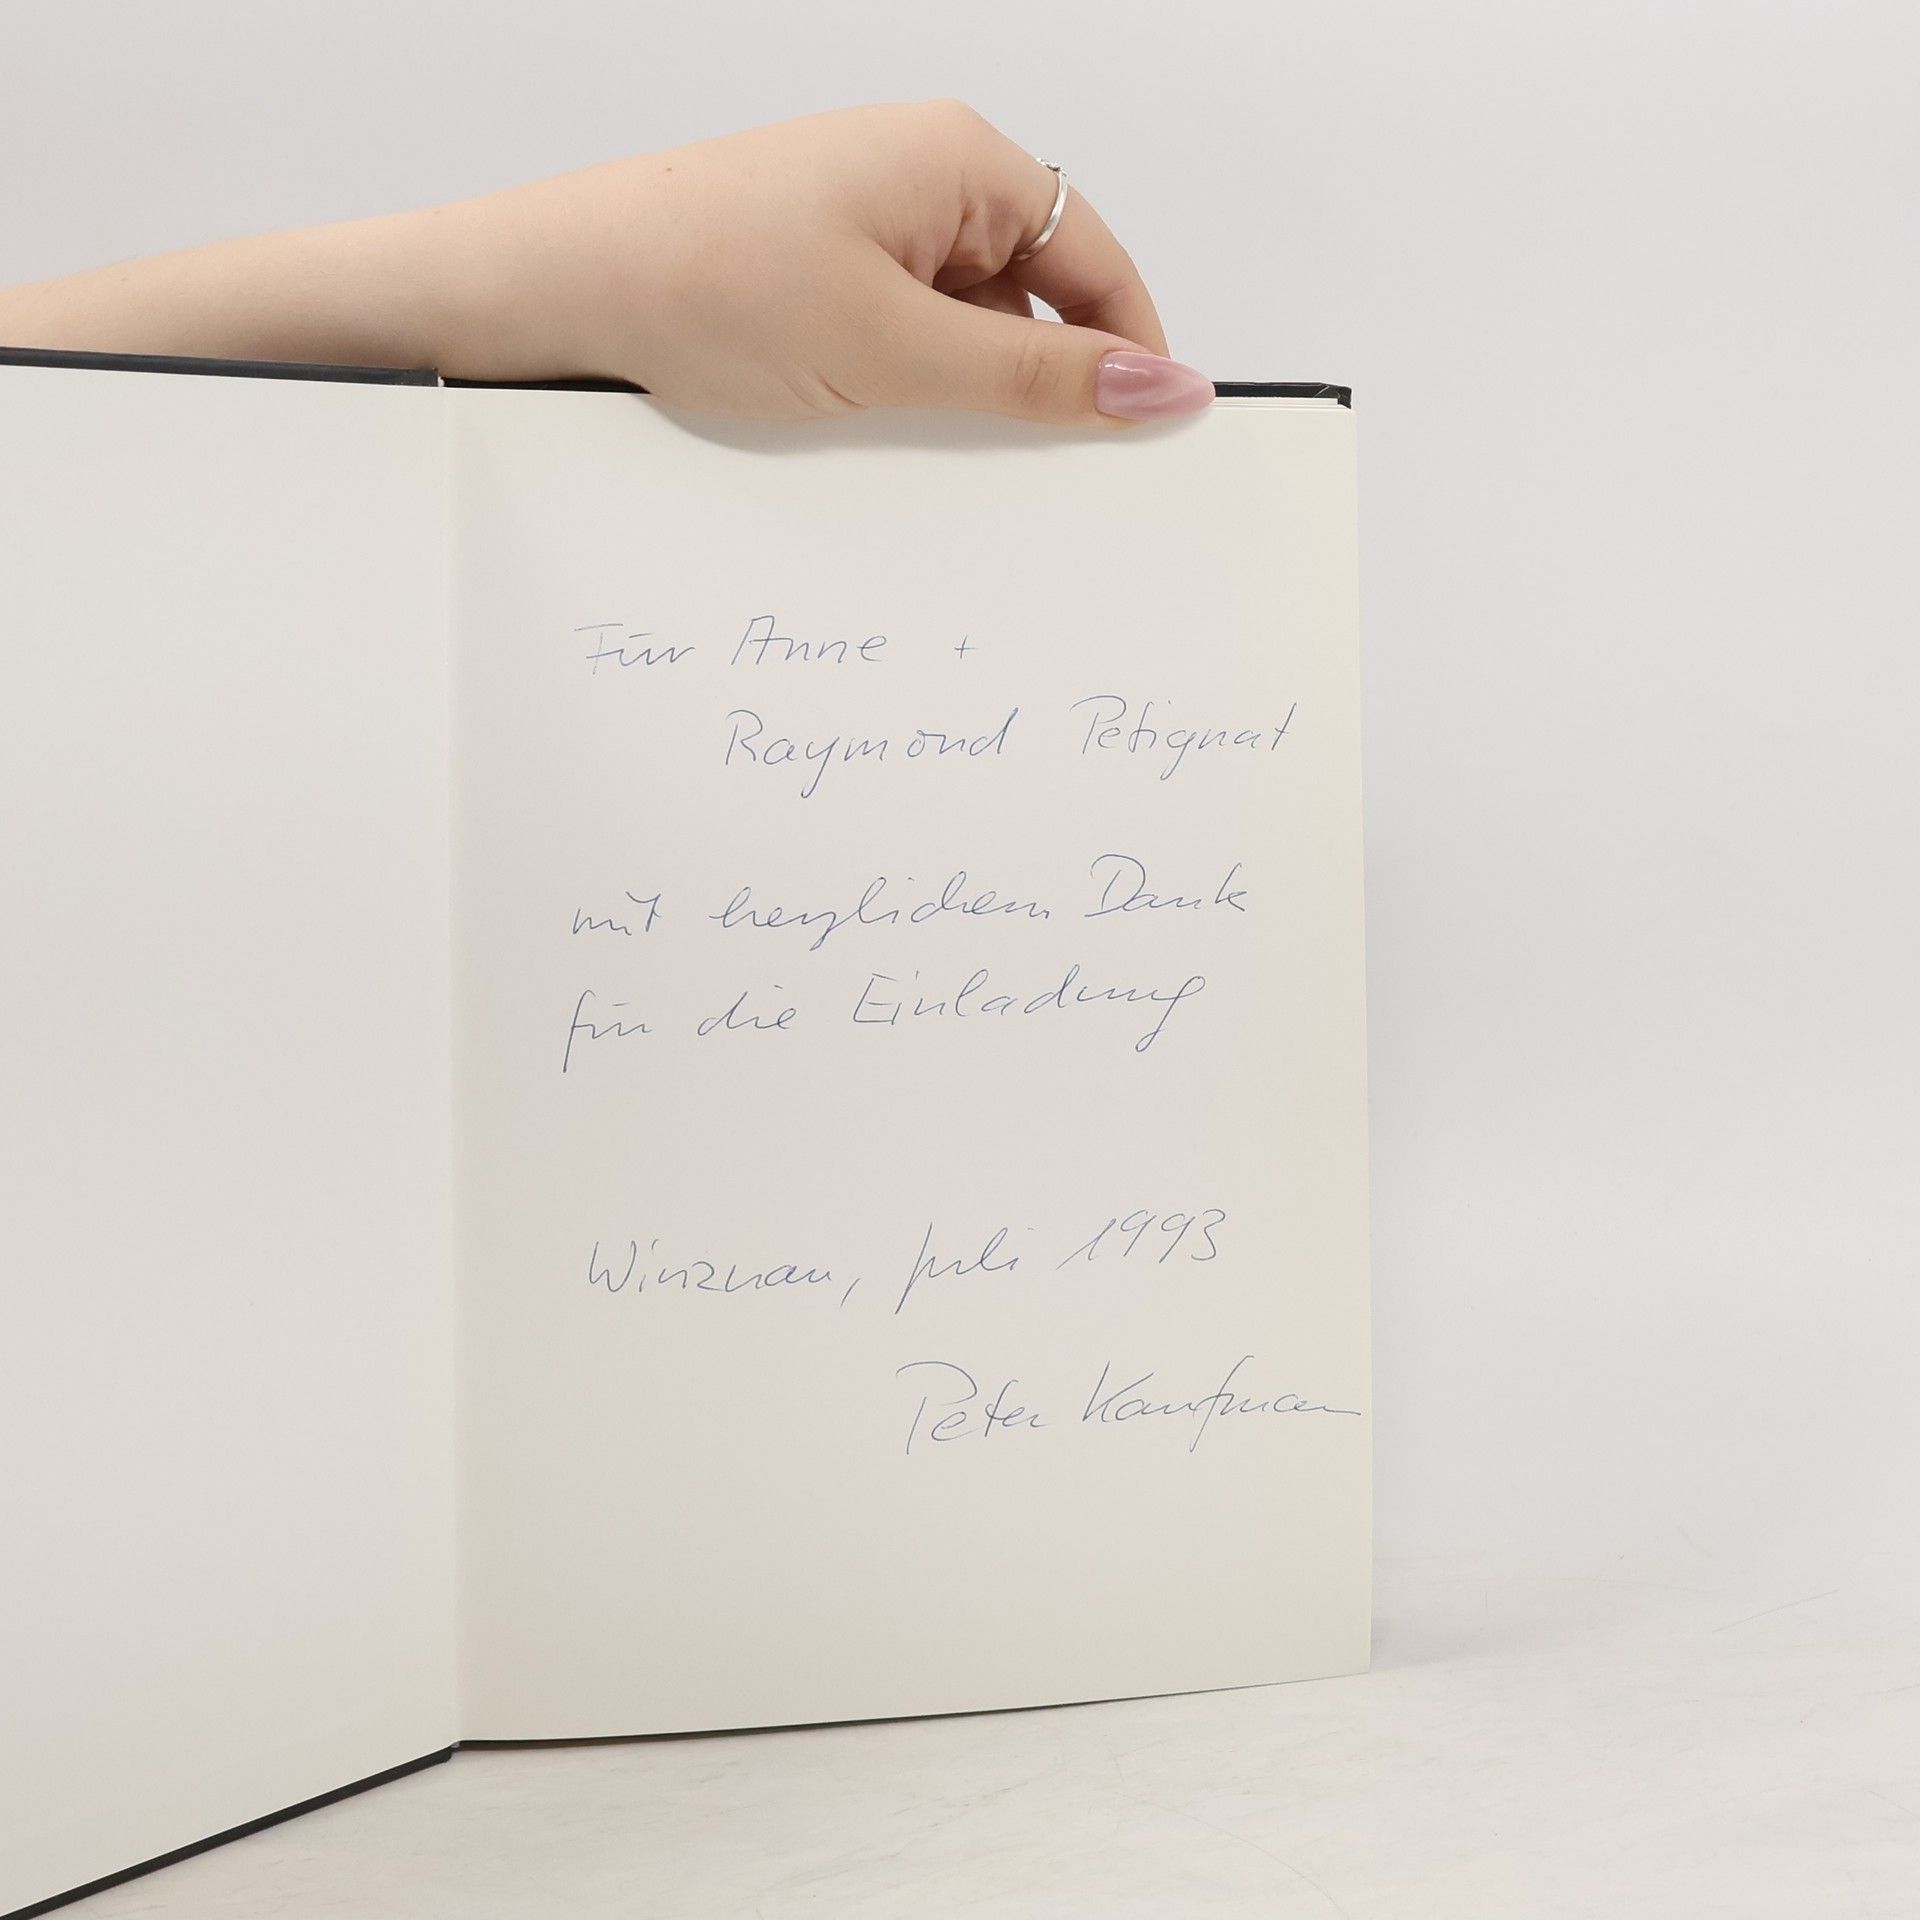 Für Anne +
Raymond Petignat
mit herzlichem Dank
für die Einladung
Winznau, Juli 1993
Peter Kaufmann